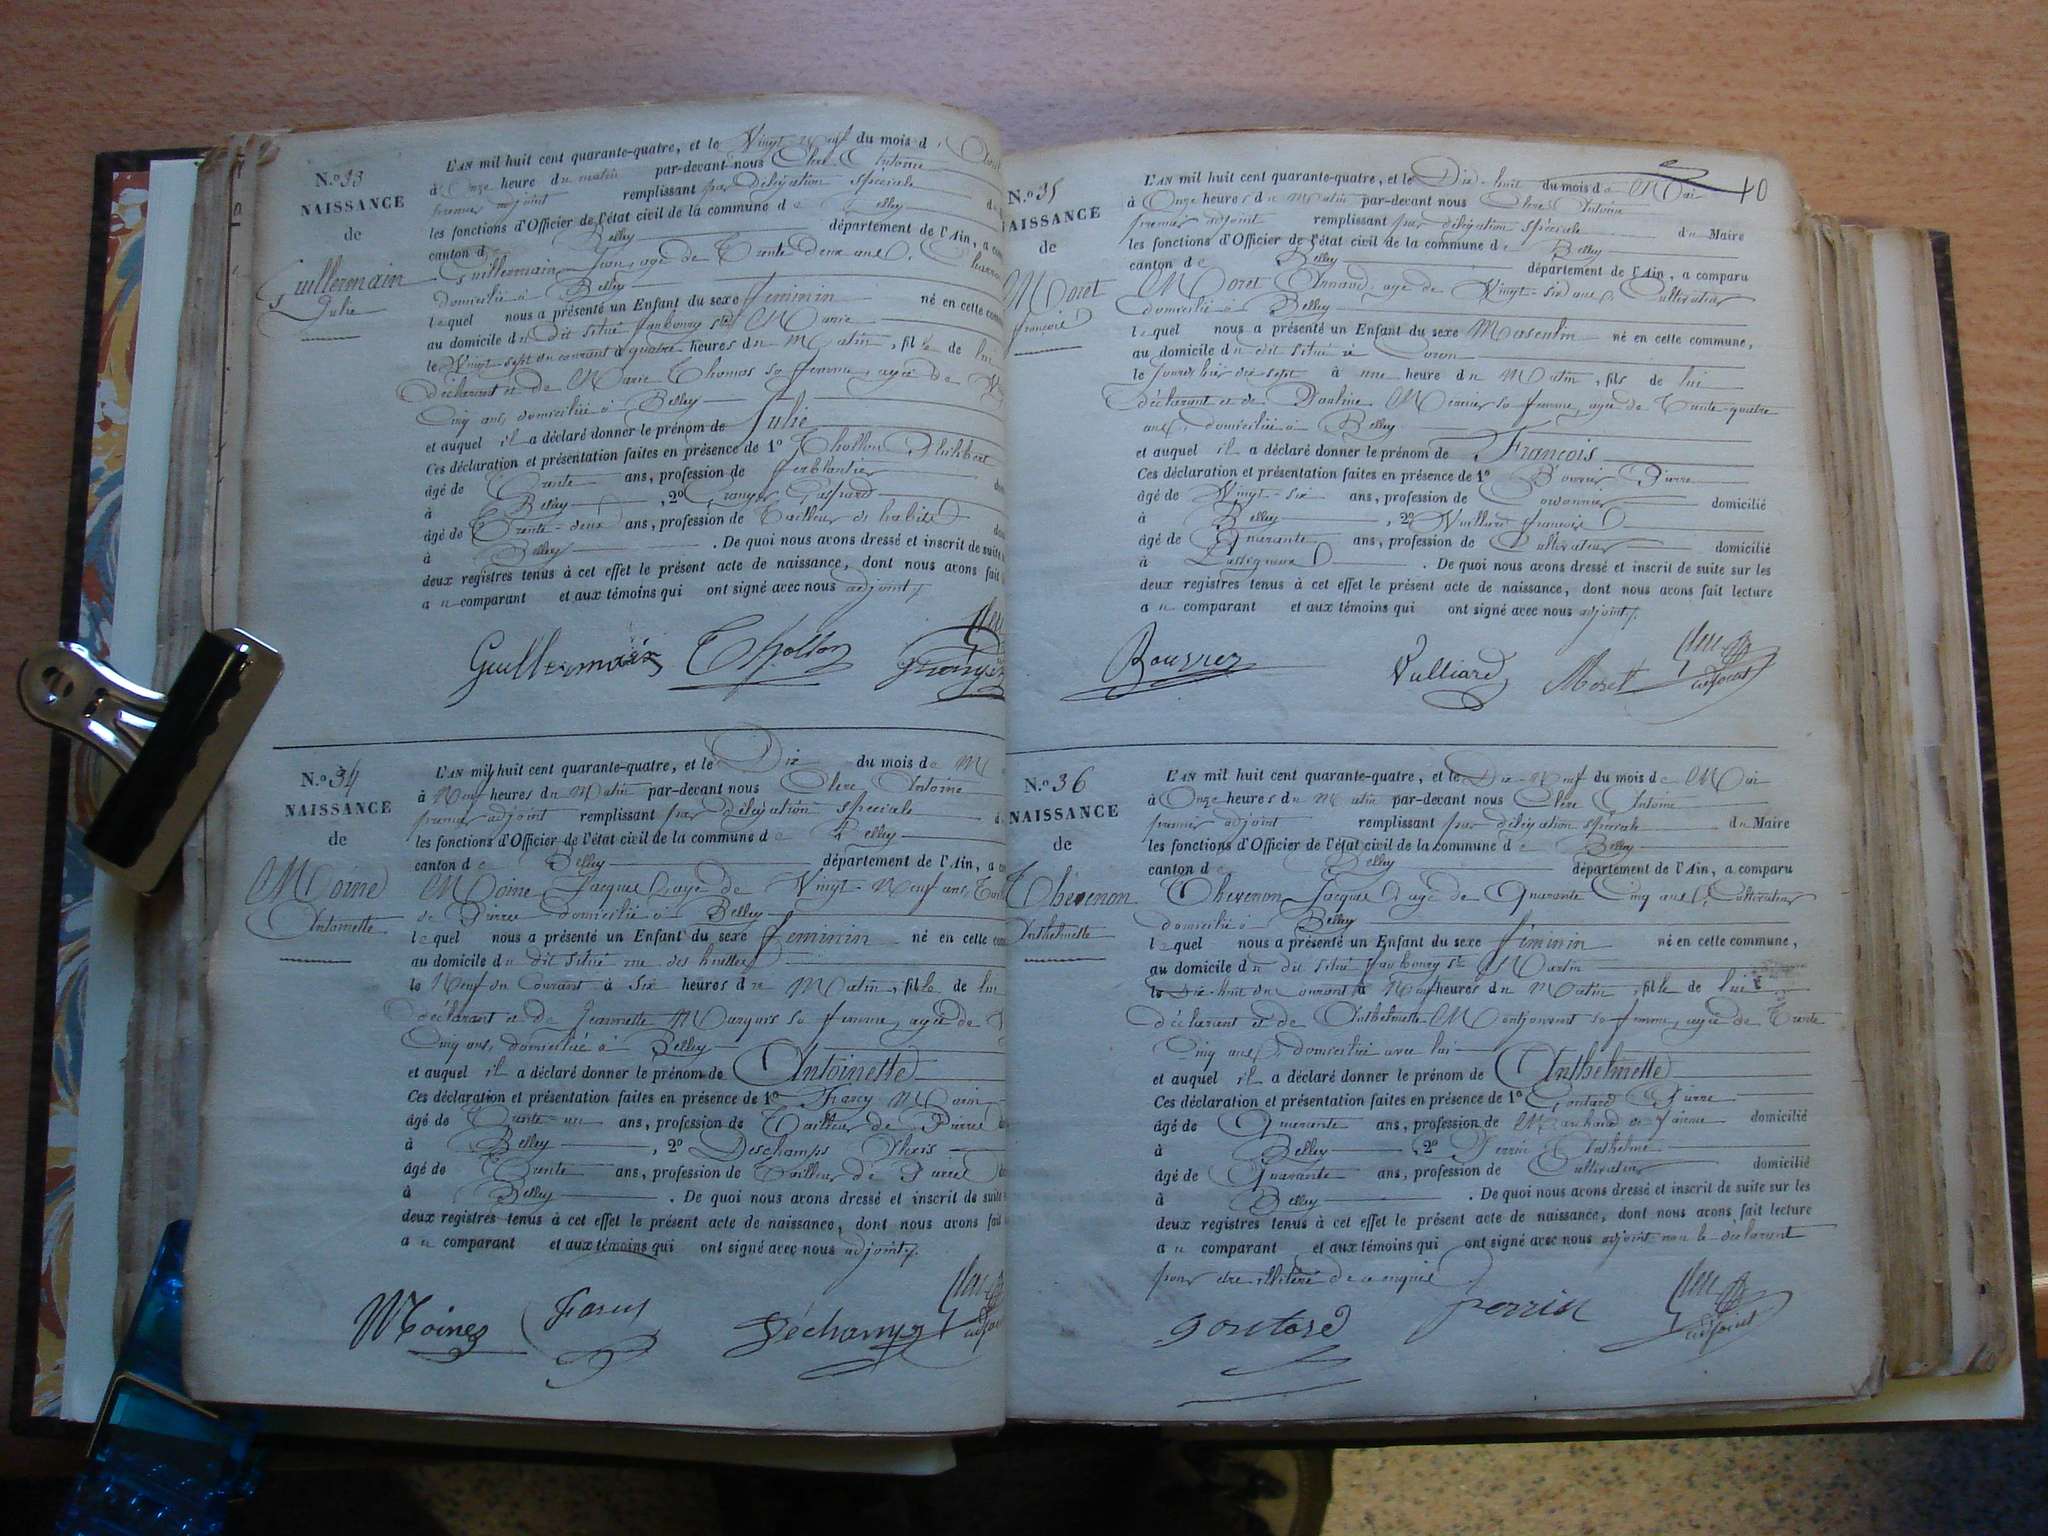 N.o 33
NAISSANCE
de
Guillermain
Julie
L'AN mil huit cent quarante-quatre, et le Vingt Neuf du mois d'
à Onze heure du matin par-devant nous Clerc Antoine
premier adjoint remplissant par délégation spéciale
les fonctions d'Officier de l'état civil de la commune de Belley
canton de Belley département de l'Ain, a
Guillermain Jean, agé de Trente deux ans,
domicilié à Belley
lequel nous a présenté un Enfant du sexe feminin né en cette
au domicile du dit situé faubourg Ste Marie
le Vingt-sept du courant à quatre heures du Matin, fille de lui
déclarant et de Marie Thomas sa femme, agée de
Cinq ans, domiciliée à Belley
et auquel il a déclaré donner le prénom de Julie
Ces déclaration et présentation faites en présence de 1o Thollon Philibert
âgé de Trente ans, profession de ferblantier
à Belley, 2o Granger Gaspard
âgé de Trente-deux ans, profession de Tailleur d'habits
à Belley. De quoi nous avons dressé et inscrit de suite
deux registres tenus à cet effet le présent acte de naissance, dont nous avons fait
au comparant et aux témoins qui ont signé avec nous adjoint.
Guillermain Thollon
N.o 34
NAISSANCE
de
Moine
Antoinette
L'AN mil huit cent quarante-quatre, et le Dix du mois de
à Neuf heures du Matin par-devant nous Clerc Antoine
premier adjoint remplissant par délégation spéciale
les fonctions d'Officier de l'état civil de la commune de Belley
canton de Belley département de l'Ain, a
Moine Jacques agé de Vingt-Neuf ans,
de Pierre domicilié à Belley
lequel nous a présenté un Enfant du sexe feminin né en cette
au domicile du dit situé rue des
le Neuf du Courant à Six heures du Matin, fille de lui
déclarant et de Jeannette Marquis sa femme, agée de
Cinq ans, domiciliée à Belley
et auquel il a déclaré donner le prénom de Antoinette
Ces déclaration et présentation faites en présence de 1o Farcy
âgé de Trente un ans, profession de Tailleur de Pierre
à Belley, 2o Deschamps
âgé de Trente ans, profession de Tailleur de Pierre
à Belley. De quoi nous avons dressé et inscrit de suite
deux registres tenus à cet effet le présent acte de naissance, dont nous avons fait
au comparant et aux témoins qui ont signé avec nous adjoint.
Moine Farcy
40
N.o 35
NAISSANCE
de
Moret
françois
L'AN mil huit cent quarante-quatre, et le Dix-huit du mois de Mai
à Onze heures du Matin par-devant nous Clerc Antoine
premier adjoint remplissant par délégation spéciale du Maire
les fonctions d'Officier de l'état civil de la commune de Belley
canton de Belley département de l'Ain, a comparu
Moret Arnaud, agé de Vingt-six ans, Cultivateur
domicilié à Belley
lequel nous a présenté un Enfant du sexe Masculin né en cette commune,
au domicile du dit situé à Coron
le jour d'hier dix sept à une heure du Matin, fils de lui
déclarant et de Pauline Mercier sa femme, agée de Trente-quatre
ans, domiciliée à Belley
et auquel il a déclaré donner le prénom de François
Ces déclaration et présentation faites en présence de 1o Bouvier Pierre
âgé de Vingt-six ans, profession de Cordonnier domicilié
à Belley, 2o Vulliard françois
âgé de Quarante ans, profession de Cultivateur domicilié
à. De quoi nous avons dressé et inscrit de suite sur les
deux registres tenus à cet effet le présent acte de naissance, dont nous avons fait lecture
au comparant et aux témoins qui ont signé avec nous adjoint.
Bouvier Vulliard Moret adjoint
N.o 36
NAISSANCE
de
Thévenon
Anthelmette
L'AN mil huit cent quarante-quatre, et le Dix-Neuf du mois de Mai
à Onze heures du Matin par-devant nous Clerc Antoine
premier adjoint remplissant par délégation spéciale du Maire
les fonctions d'Officier de l'état civil de la commune de Belley
canton de Belley département de l'Ain, a comparu
Thevenon Jacques agé de Quarante Cinq ans, Cultivateur
domicilié à Belley
lequel nous a présenté un Enfant du sexe féminin né en cette commune,
au domicile du dit situé faubourg St Martin
le Dix-huit du Courant à Neuf heures du Matin, fille de lui
déclarant et de Anthelmette Montjouvent sa femme, agée de Trente
Cinq ans, domiciliée avec lui
et auquel il a déclaré donner le prénom de Anthelmette
Ces déclaration et présentation faites en présence de 1o Goutard Pierre
âgé de Quarante ans, profession de Marchand de farine domicilié
à Belley, 2o Perrin Anthelme
âgé de Quarante ans, profession de Cultivateur domicilié
à Belley. De quoi nous avons dressé et inscrit de suite sur les
deux registres tenus à cet effet le présent acte de naissance, dont nous avons fait lecture
au comparant et aux témoins qui ont signé avec nous adjoint non le déclarant
pour être illitéré de ce enquis
goutard perrin adjoint